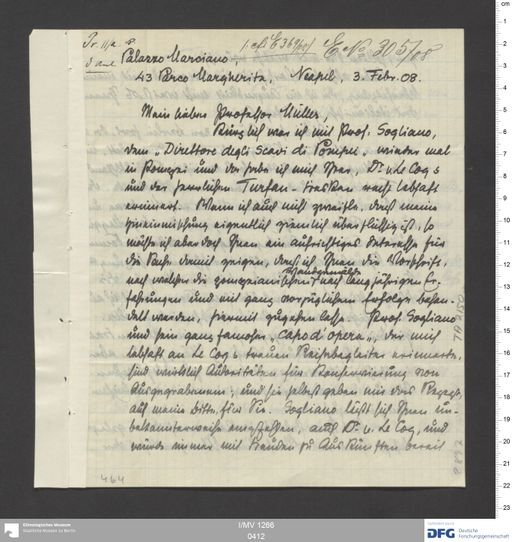 I. cf. E 369/08 E No 305/08
Palazzo Marciano,
43 Parco Margherita, Neapel, 3. Febr. 08.
Mein lieber Professor Müller,
Kürzlich war ich mit Prof. Sogliano,
dem „Direttore degli Scavi di Pompei" wieder mal
in Pompei und da habe ich mich Ihrer, Dr. v. Le Coqs
und der herrlichen Turfan-Fresken recht lebhaft
erinnert. Wenn ich auch nicht zweifle, dass meine
Einmischung eigentlich ziemlich überflüssig ist, so
möchte ich aber doch Ihnen ein aufrichtiges Interesse für
die Sache damit zeigen, dass ich Ihnen die Vorschrift,
nach welcher die pompeianischen Wandgemälde nach langjährigen Er-
fahrungen und mit ganz vorzüglichem Erfolge behan-
delt werden, hiermit zugehen lasse. Prof. Sogliano
und sein ganz famoser „capo d'opera", der mich
lebhaft an Le Coqs treuen Reisebegleiter erinnerte,
sind wirklich Autoritäten für Konservierung von
Ausgegrabenem, und sie selbst gaben mir das Rezept
auf meine Bitte für Sie. Sogliano lässt sich Ihnen un-
bekannterweise empfehlen, auch Dr. v. Le Coq, und
würde immer mit Freuden zu Auskünften bereit
464
Ethnologisches Museum
Staatliche Museen zu Berlin
I/MV 1266
0412
gefördert durch
DFG Deutsche
Forschungsgemeinschaft
cm
1
2
3
4
5
6
7
8
9
10
11
12
13
14
15
16
17
18
19
20
21
22
23